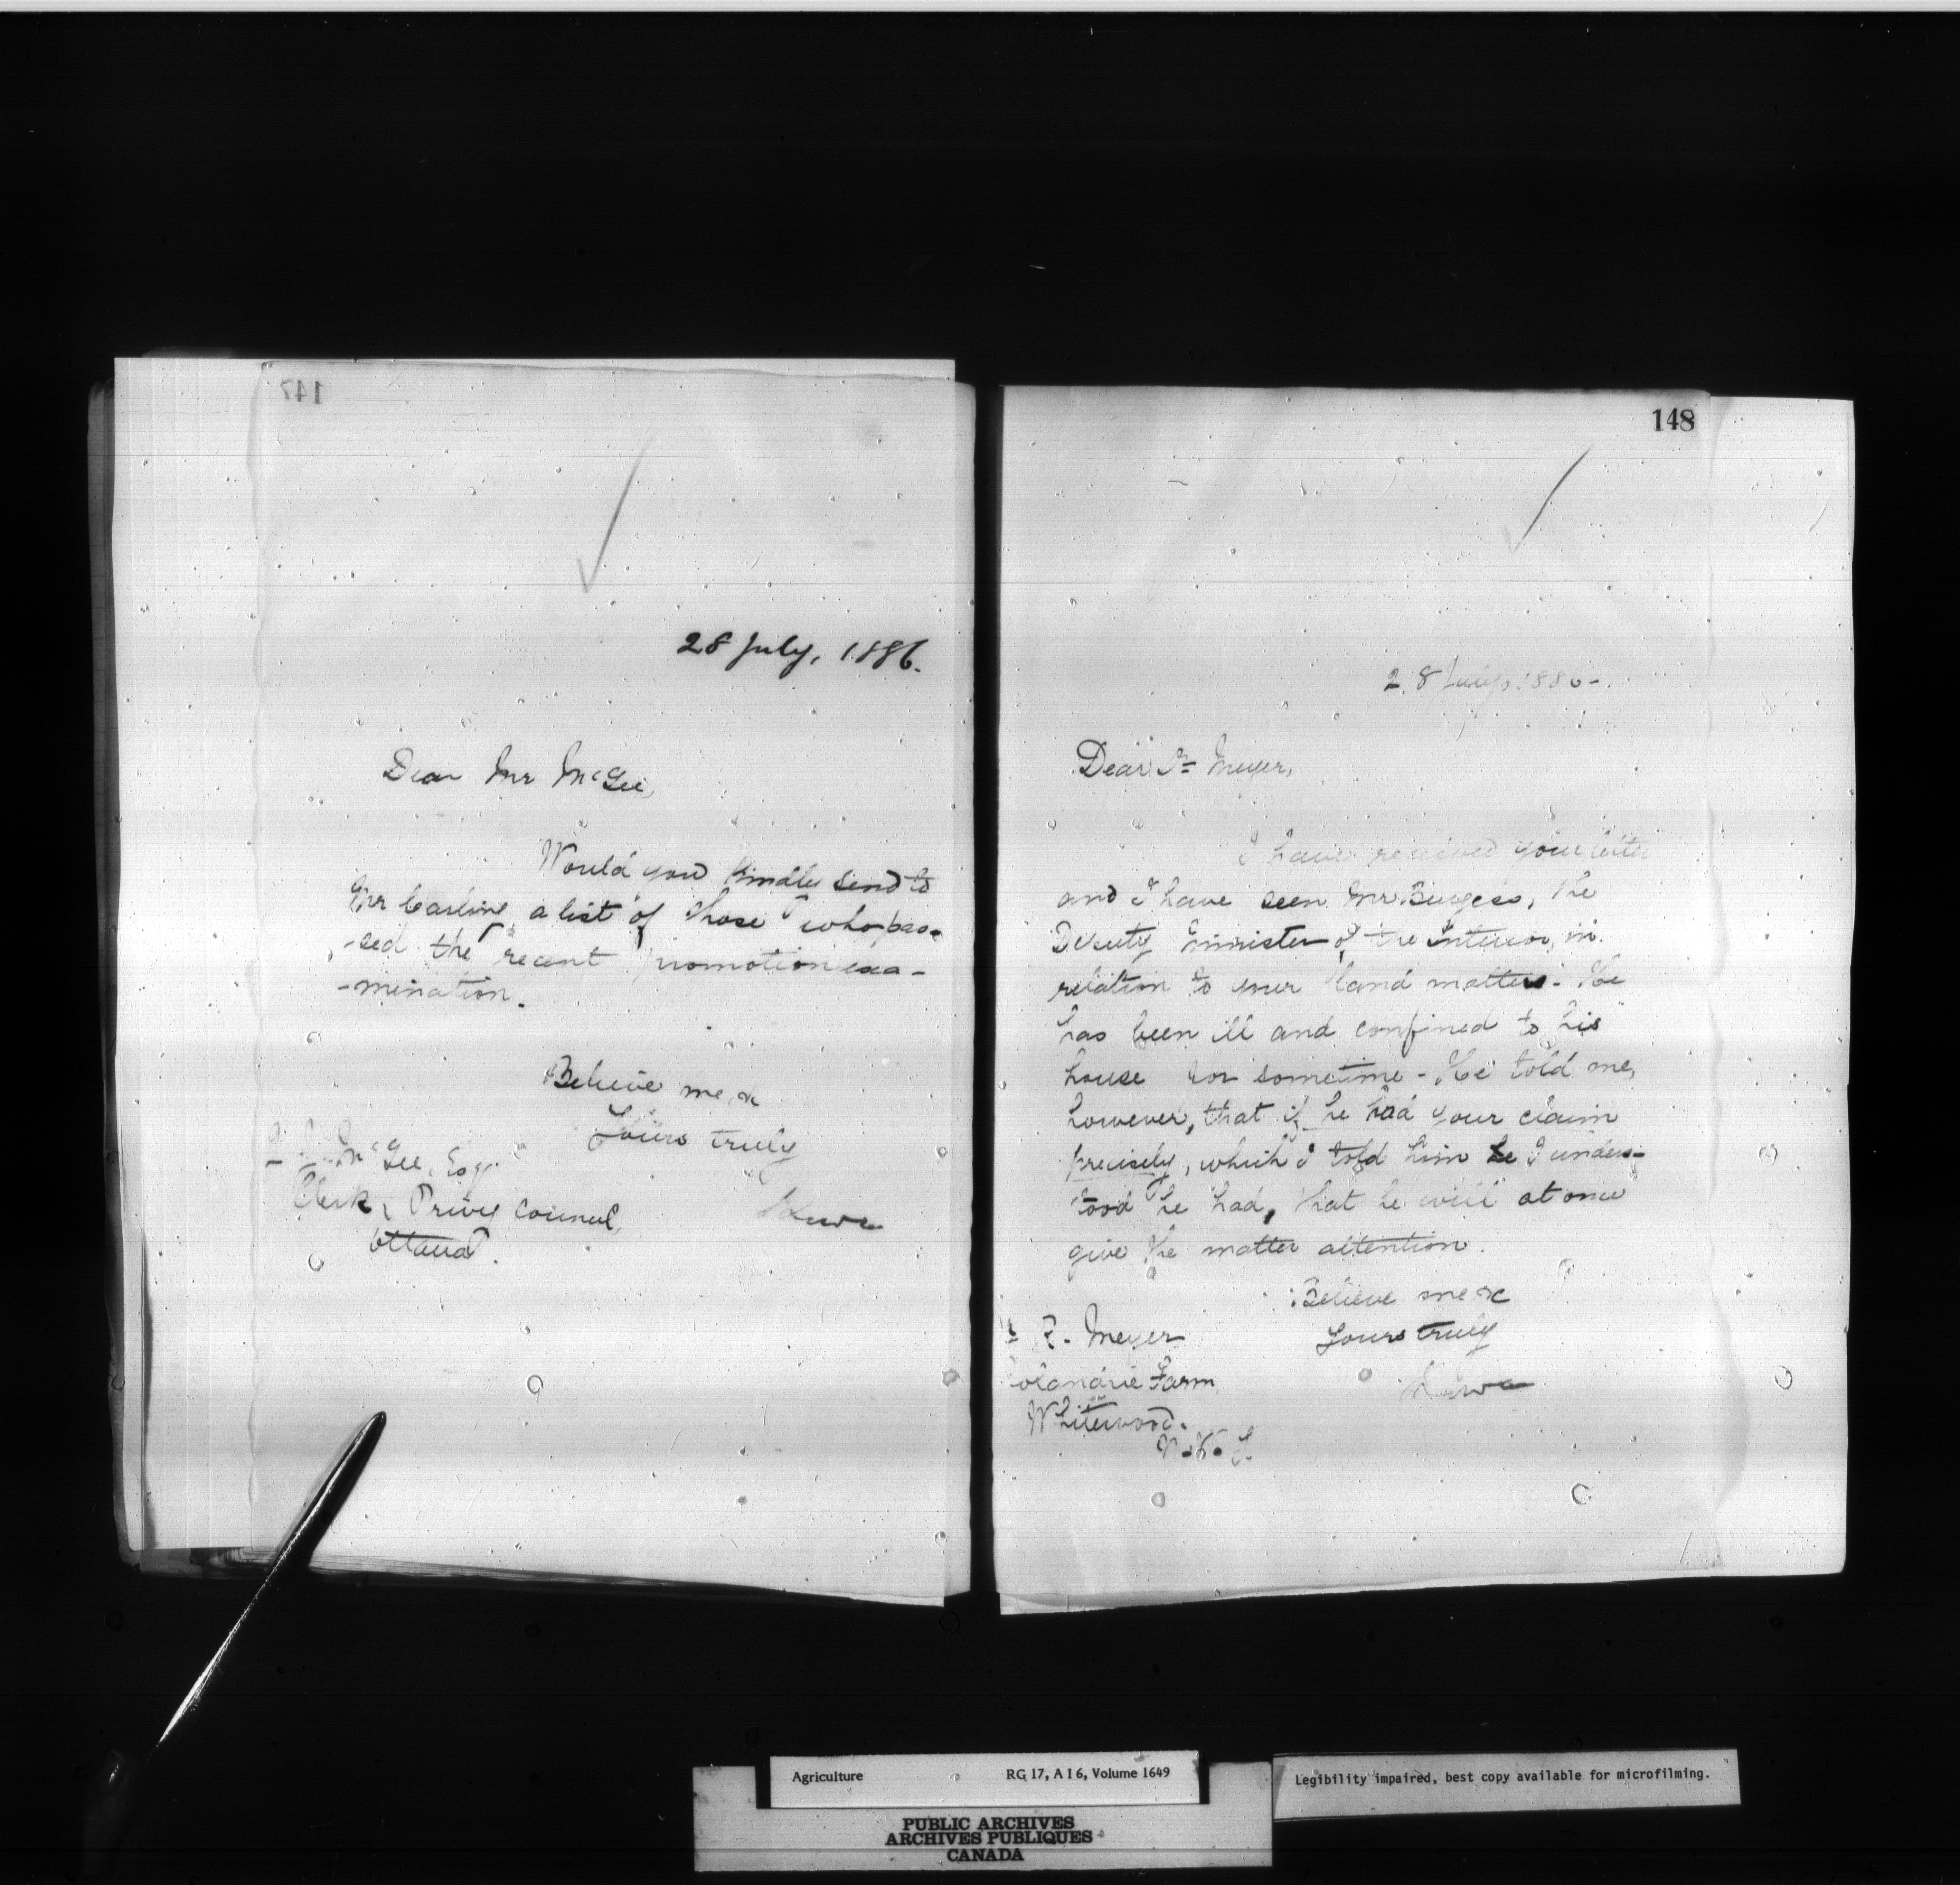 147
28 July, 1886.
Dear Mr McGee,
Would you kindly send to
Mr Carling a list of those who pas-
-sed the recent promotion exa-
-mination.
Believe me &c
Yours truly
McGee, Esqr
Clerk, Privy Council,
Ottawa.
Lowe
148
28 July, 188
Dear Dr Meyer,
I have received your letter
and I have seen Mr Burgess, the
Deputy Minister of the Interior, in
relation to your land matters. He
has been ill and confined to his
house for sometime - He told me,
however, that if he had your claim
precisely, which I told him he I unders-
tood he had, that he will at once
give the matter attention.
Believe me &c
Yours truly
Lowe
R. Meyer
Farm
Whitewood.
N.W.T.
Agriculture RG 17, A I 6, Volume 1649
Legibility impaired, best copy available for microfilming.
PUBLIC ARCHIVES
ARCHIVES PUBLIQUES
CANADA